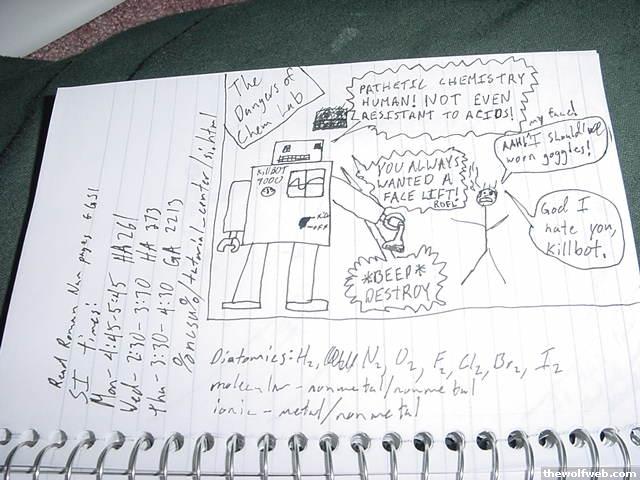 The
Dangers of
Chem Lab
PATHETIC CHEMISTRY
HUMAN! NOT EVEN
RESISTANT TO ACIDS!
my face!
AAH! I should've
worn goggles!
KILLBOT
9000
YOU ALWAYS
WANTED A
FACE LIFT!
ROFL!
God I
hate you,
Killbot.
OFF
*BEEP*
DESTROY
Diatomics: H2, N2, O2, F2, Cl2, Br2, I2
molecular - nonmetal/nonmetal
ionic - metal/nonmetal
Read Roman Num pages
SI times:
Mon - 4:45-5:45 HA 261
Wed - 2:30-3:30 HA 373
Thu - 3:30-4:30 GA 2213
/tutorial_center/si.html
thewolfweb.com